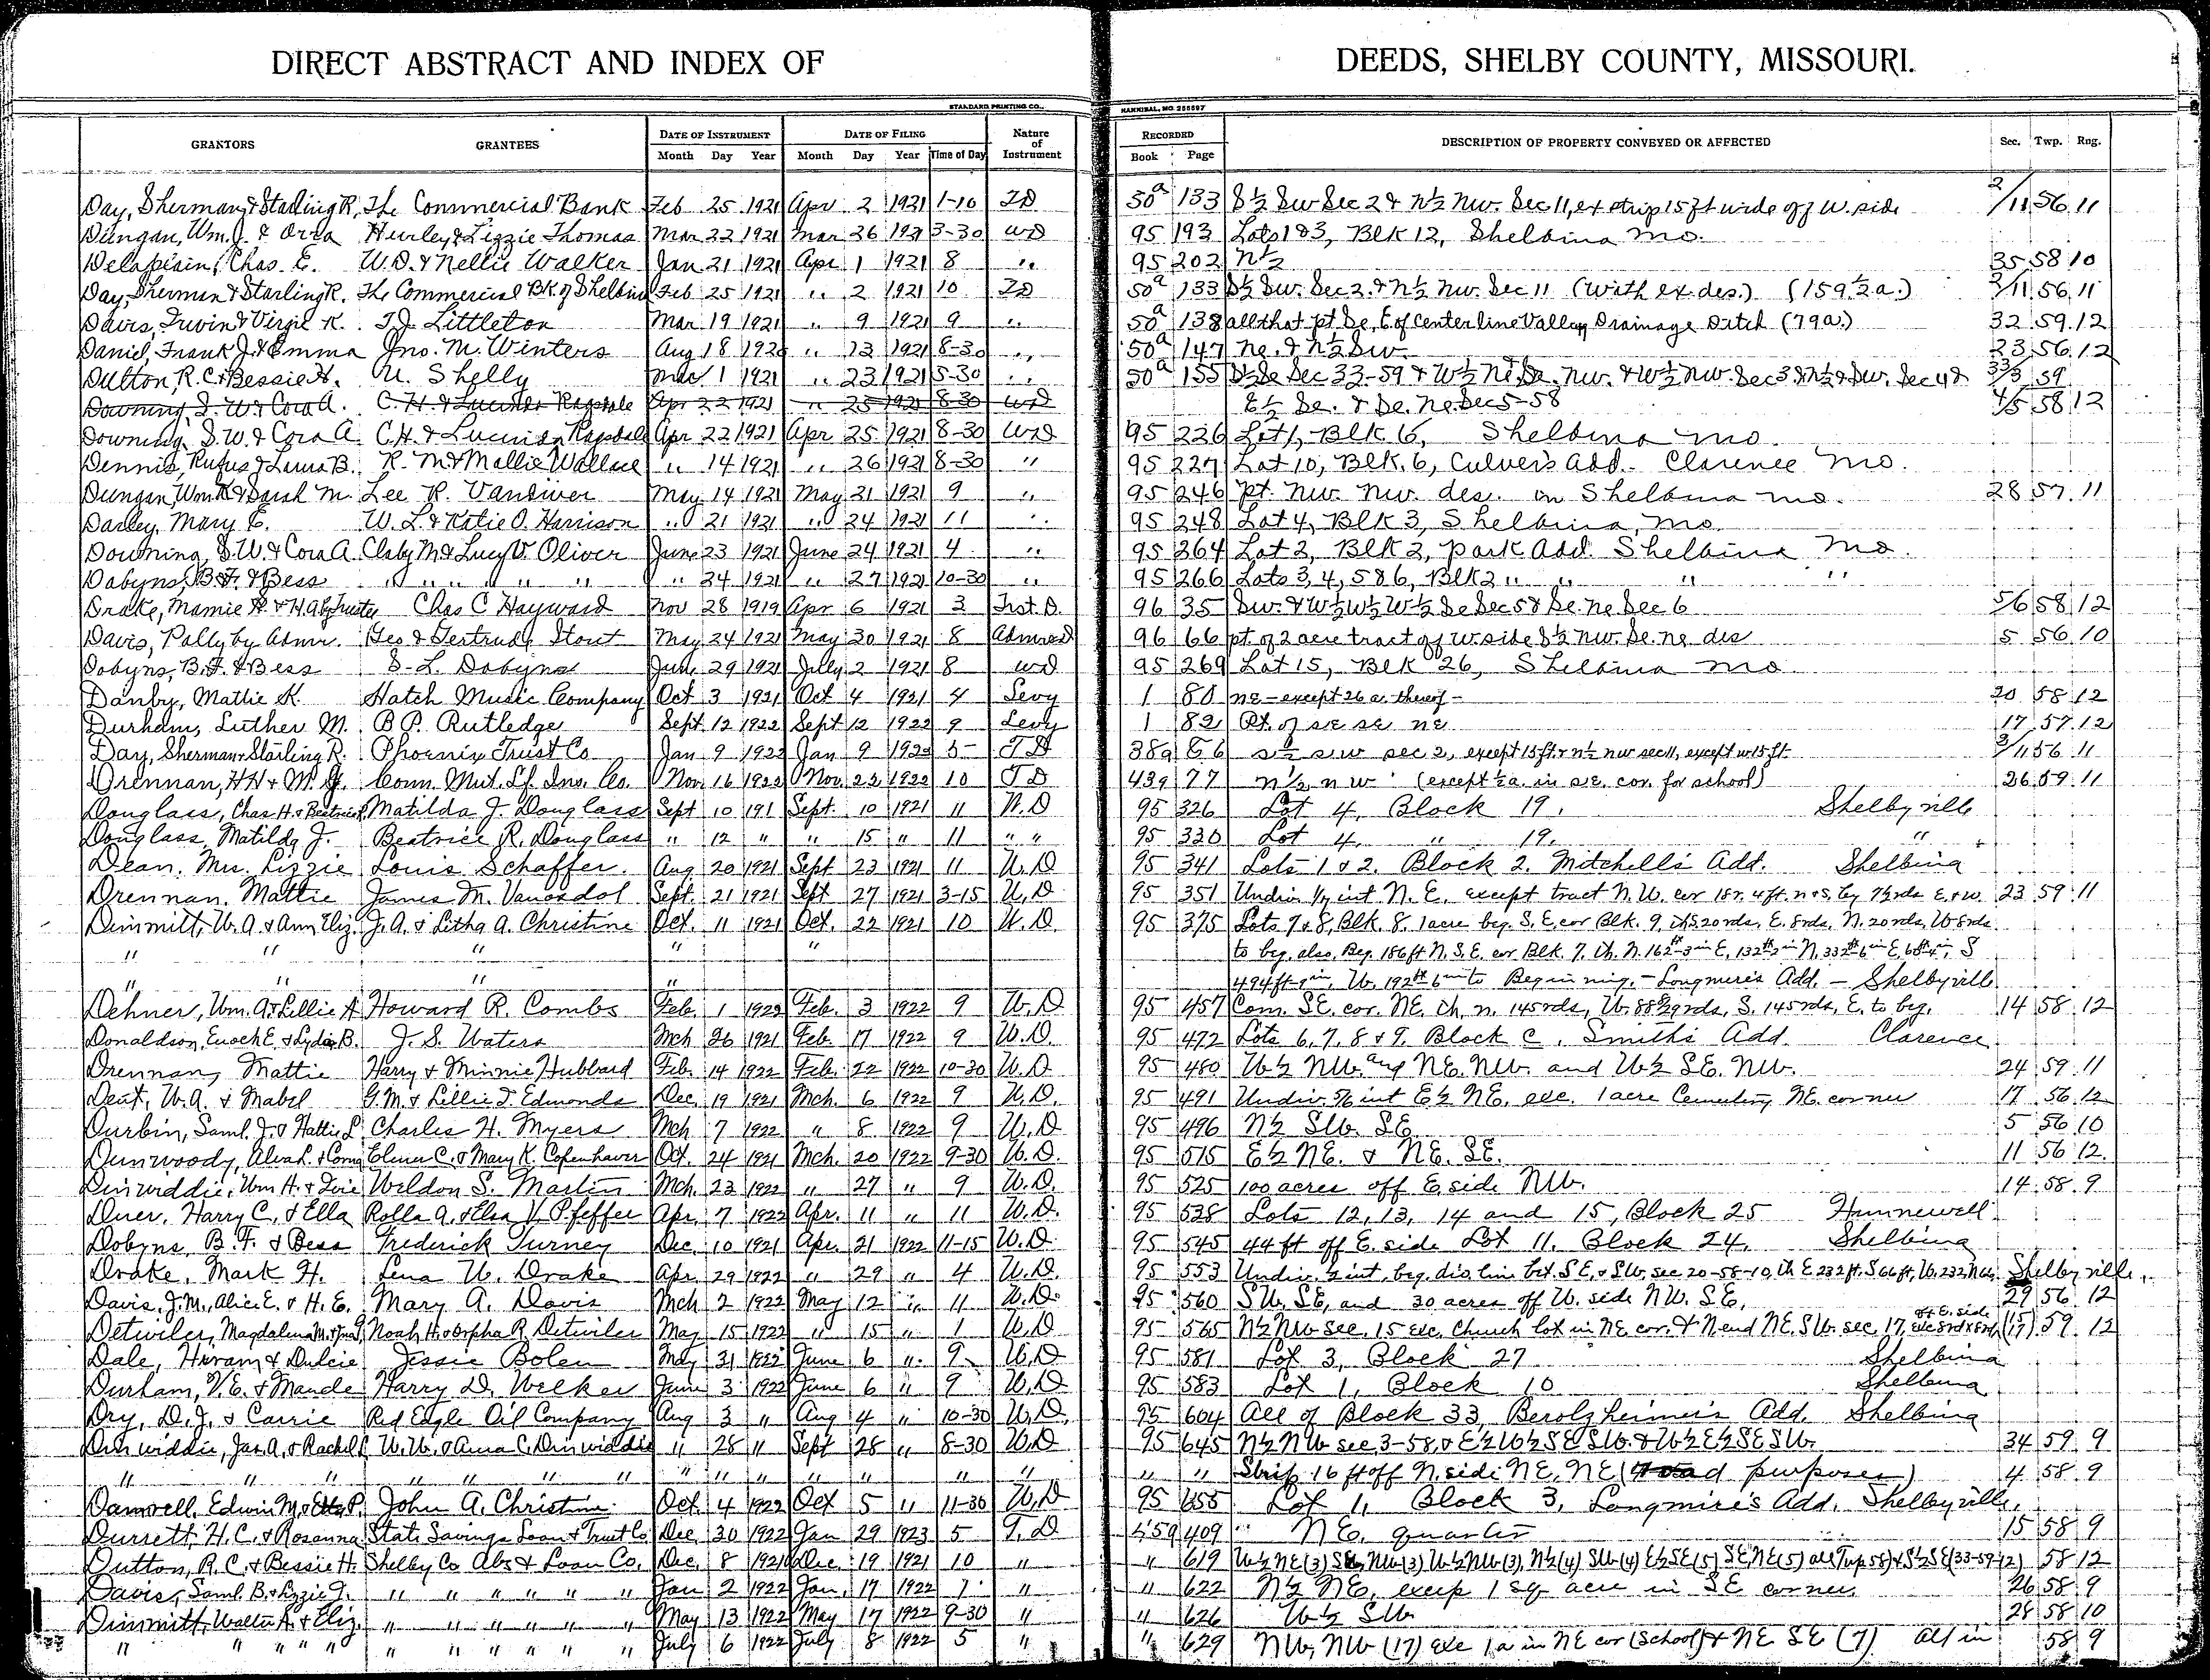 DIRECT ABSTRACT AND INDEX OF DEEDS, SHELBY COUNTY, MISSOURI.
STANDARD PRINTING CO., HANNIBAL, MO. 255597
GRANTORS GRANTEES DATE OF INSTRUMENT DATE OF FILING Nature of Instrument RECORDED DESCRIPTION OF PROPERTY CONVEYED OR AFFECTED Sec. Twp. Rng.
Month Day Year Month Day Year Time of Day Book Page
Day, Sherman & Starling R, The Commercial Bank Feb 25 1921 Apr 2 1921 1-10 TD 50a 133 S½ Sw Sec 2 & N½ Nw. Sec 11, ex strip 15 ft wide off W. side 2/11 56 11
Dungan, Wm. J. & Orra Hurley & Lizzie Thomas Mar 22 1921 Mar 26 1921 3-30 WD 95 193 Lots 1 & 3, Blk 12, Shelbina Mo.
Delaplain, Chas. E. W.D. & Nellie Walker Jan 21 1921 Apr 1 1921 8 " 95 202 N½ 35 58 10
Day, Sherman & Starling R. The Commercial Bk. of Shelbina Feb 25 1921 " 2 1921 10 TD 50a 133 S½ Sw. Sec 2. & N½ Nw. Sec 11 (with ex. des.) (159½ a.) 2/11 56 11
Davis, Irvin & Virgie K. T.J. Littleton Mar 19 1921 " 9 1921 9 " 50a 138 all that pt Se, E of Center line Valley Drainage Ditch (79a.) 32 59 12
Daniel, Frank J. & Emma Jno. M. Winters Aug 18 1920 " 13 1921 8-30 " 50a 147 Ne. & N½ Sw. 23 56 12
Dutton, R. C. & Bessie H. U. Shelly Mar 1 1921 " 23 1921 5-30 " 50a 155 S½ Se Sec 33-59 & W½ Ne, Se. Nw. & W½ Nw. Sec 3 & N½ & Sw. Sec 4 & 33/3 59
Downing, S. W. & Cora A. C. H. & Lucinda Ragsdale Apr 22 1921 " 25 1921 8-30 WD E½ Se. & Se. Ne. Sec 5-58 4/5 58 12
Downing, S. W. & Cora A C.H. & Lucinda Ragsdale Apr 22 1921 Apr 25 1921 8-30 WD 95 226 Lot 1, Blk 6, Shelbina Mo.
Dennis, Rufus & Laura B. R. M. & Mollie Wallace " 14 1921 " 26 1921 8-30 " 95 227 Lot 10, Blk. 6, Culver's Add. Clarence Mo.
Dungan, Wm. K & Sarah M. Lee R. Vandiver May 14 1921 May 21 1921 9 " 95 246 pt. Nw. Nw. des. in Shelbina Mo. 28 57 11
Darley, Mary E. W. L. & Katie O. Harrison " 21 1921 " 24 1921 11 " 95 248 Lot 4, Blk 3, Shelbina, Mo.
Downing, S.W. & Cora A. Claby M & Lucy V. Oliver June 23 1921 June 24 1921 4 " 95 264 Lot 2, Blk 2, Park Add. Shelbina Mo.
Dobyns, B.F. & Bess " " " " " " " 24 1921 " 27 1921 10-30 " 95 266 Lots 3, 4, 5 & 6, Blk 2 " " " "
Drake, Mamie H. & H.A. by Trustee Chas C Hayward Nov 28 1919 Apr 6 1921 3 Trst. D. 96 35 Sw. & W½ W½ W½ Se Sec 5 & Se. Ne Sec 6 5/6 58 12
Davis, Polly by Admr. Geo & Gertrude Stout May 24 1921 May 30 1921 8 Admr D 96 66 pt. of 2 acre tract off W side S½ Nw. Se. Ne des 5 56 10
Dobyns, B.F. & Bess S. L. Dobyns June 29 1921 July 2 1921 8 WD 95 269 Lot 15, Blk 26, Shelbina Mo.
Danby, Mattie K. Hatch Music Company Oct 3 1921 Oct 4 1921 4 Levy 1 80 NE - except 26 a. thereof - 20 58 12
Durham, Luther M. B P. Rutledge Sept 12 1922 Sept 12 1922 9 Levy 1 82 Pt. of SE SE NE 17 57 12
Day, Sherman & Starling R. Phoenix Trust Co Jan 9 1922 Jan 9 1922 5- TD 38a 66 S½ SW sec 2, except 15 ft & N½ NW sec 11, except W 15 ft. 2/11 56 11
Drennan, H H & M. J. Conn. Mut. Lf. Ins. Co. Nov. 16 1922 Nov. 22 1922 10 TD 43a 77 N½ NW (except ½ a. in S.E. cor. for school) 26 59 11
Douglass, Chas H. & Beatrice R. Matilda J. Douglass Sept 10 191 Sept. 10 1921 11 W.D 95 326 Lot 4, Block 19. Shelbyville
Douglass, Matilda J. Beatrice R. Douglass " 12 " " 15 " 11 " " 95 330 Lot 4, " 19, "
Dean, Mrs. Lizzie Louis Schaffer. Aug 20 1921 Sept 23 1921 11 W.D 95 341 Lots 1 & 2. Block 2. Mitchell's Add. Shelbina
Drennan, Mattie James M. Vanosdol Sept. 21 1921 Sept 27 1921 3-15 W.D 95 351 Undiv. 1/7 int N. E. except tract N. W. cor 18 r. 4 ft. n & s. by rds E & W. 23 59 11
Dimmitt, W. A. & Ann Eliz. J. A. & Litha A. Christine Oct. 11 1921 Oct. 22 1921 10 W. D. 95 375 Lots 7 & 8, Blk. 8. 1 acre beg. S. E. cor Blk. 9, th S. 20 rds, E. 8 rds, N. 20 rds, W 8 rds
" " " " " to beg. also, Beg. 186 ft N. S.E. cor Blk. 7. th. N. 162 ft 3 in E, 132 ft 2 in N, 332 ft 6 in E, 68 ft 4 in, S
" " " " 494 ft in W. 192 ft 6 in to Beginning. - Longmire's Add. - Shelbyville
Dehner, Wm. A. & Lillie A Howard R. Combs Feb. 1 1922 Feb. 3 1922 9 W.D 95 457 Com. SE. cor. NE. th. n. 145 rds, W. 88 rds, S. 145 rds, E. to beg. 14 58 12
Donaldson, Enoch E. & Lydia B. J. S. Waters Mch 26 1921 Feb. 17 1922 9 W.D. 95 472 Lots 6, 7, 8 & 9. Block C. Smith's Add. Clarence
Drennan, Mattie Harry & Minnie Hubbard Feb. 14 1922 Feb. 22 1922 10-30 W.D 95 480 W½ NW. and NE. NW. and W½ SE. NW. 24 59 11
Dent, W. A. & Mabel G. M. & Lillie T. Edmonds Dec. 19 1921 Mch. 6 1922 9 W.D. 95 491 Undiv. 5/6 int E½ NE. exc. 1 acre Cemetery NE. corner 17 56 12
Durbin, Saml. J. & Hattie L. Charles H. Myers Mch 7 1922 " 8 1922 9 W.D 95 496 N½ SW. SE 5 56 10
Dunwoody, Alva L. & Coma Elmer C. & Mary K. Copenhaver Oct. 24 1921 Mch. 20 1922 9-30 W.D. 95 515 E½ NE. & NE. SE. 11 56 12
Dinwiddie, Wm H. & Zoie Weldon S. Martin Mch. 23 1922 " 27 " 9 W.D. 95 525 100 acres off E. side NW. 14 58 9
Duer, Harry C. & Ella Rolla A. & Elsa V. Pfeffer Apr. 7 1922 Apr. 11 " 11 W.D. 95 538 Lots 12, 13, 14 and 15, Block 25 Hunnewell
Dobyns, B. F. & Bess Frederick Turney Dec. 10 1921 Apr. 21 1922 11-15 W.D. 95 545 44 ft off E. side Lot 11. Block 24. Shelbina
Drake, Mark H. Lena W. Drake Apr. 29 1922 " 29 " 4 W.D. 95 553 Undiv. ½ int, beg. div. line bet. SE. & SW. sec 20-58-10, th E 232 ft. S 66 ft, W. 232, N 66 Shelbyville,
Davis, J.M., Alice E. & H. E. Mary A. Davis Mch 2 1922 May 12 " 11 W.D. 95 560 SW. SE, and 30 acres off W. side NW. SE, 29 56 12
Detwiler, Magdalena M. & Jno. Noah H. & Orpha R. Detwiler May 15 1922 " 15 " 1 W.D 95 565 N½ NW sec. 15 exc. Church lot in NE cor. & N end NE. SW. sec. 17, off E. side exc 8 rd x 8 rd (15/17) 59 12
Dale, Hiram & Dulcie Jessie Bolen May 31 1922 June 6 " 9 W.D 95 581 Lot 3, Block 27 Shelbina
Durham, V. E. & Maude Harry D. Welker June 3 1922 June 6 " 9 W.D 95 583 Lot 1, Block 10 Shelbina
Dry, D. J. & Carrie Red Eagle Oil Company Aug 3 " Aug 4 " 10-30 W.D. 95 604 All of Block 33, Berolzheimer's Add. Shelbina
Dinwiddie, Jas. A. & Rachel W. W. & Anna C. Dinwiddie " 28 " Sept 28 " 8-30 W.D 95 645 N½ NW sec 3-58, & E½ W½ SE SW. & W½ E½ SE SW. 34 59 9
" " " " " " " " " " " " " " " " " Strip 16 ft off N. side NE. NE (road purposes) 4 58 9
Damrell, Edwin M. & Etta P. John A. Christine Oct. 4 1922 Oct 5 " 11-30 W.D 95 655 Lot 1, Block 3, Longmire's Add. Shelbyville,
Durrett, H. C. & Rosanna State Savings Loan & Trust Co Dec. 30 1922 Jan 29 1923 5 T. D 409 NE. quarter 15 58 9
Dutton, R. C. & Bessie H. Shelby Co Abs & Loan Co. Dec. 8 1921 Dec. 19 1921 10 " " 619 W½ NE (3) SE, NW (3) W½ NW (3), N½ (4) SW (4) E½ SE (5) SE, NE (5) all Twp 58) & S½ SE (33-59-12) 58 12
Davis, Saml. B. & Lizzie J. " " " " " Jan 2 1922 Jan. 17 1922 1 " " 622 N½ NE, excep 1 sq acre in SE corner. 26 58 9
Dimmitt, Walter A. & Eliz. " " " " " " May 13 1922 May 17 1922 9-30 " " 626 W½ SW 28 58 10
" " " " " " " " " " " July 6 1922 July 8 1922 5 " " 629 NW, NW (17) exc 1a in NE cor (School) & NE SE (7) all in 58 9